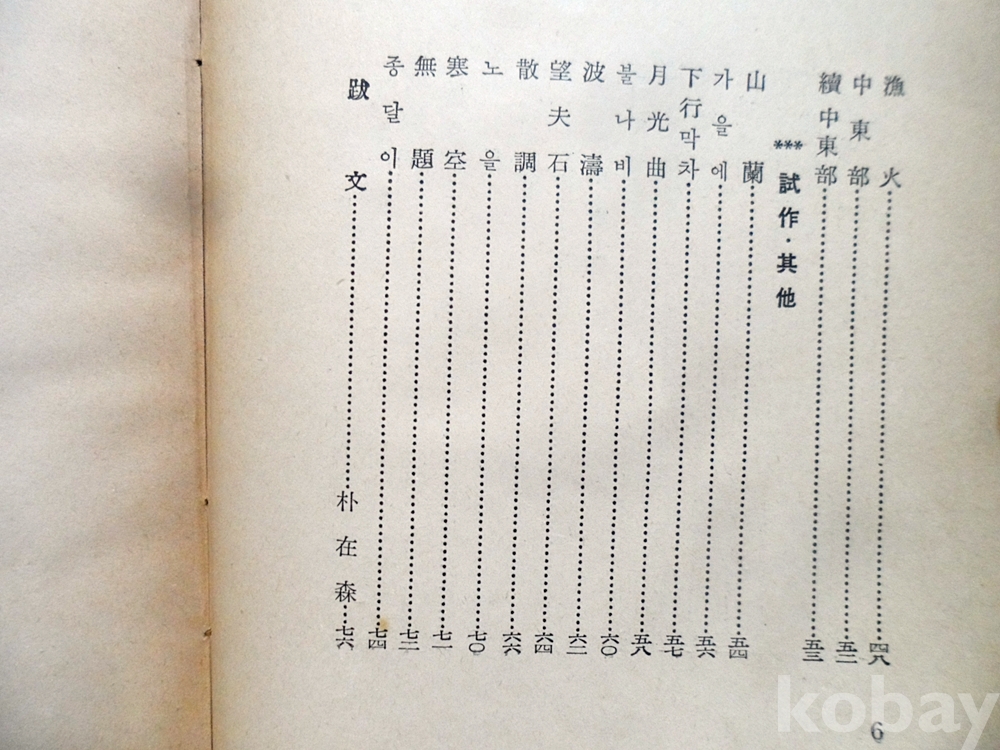 漁火……四八
中東部……五二
續中東部……五三
*** 試作·其他
山蘭……五四
가을에……五六
下行막차……五七
月光曲……五八
불나비……六〇
波濤……六二
望夫石……六四
散調……六六
노을……七〇
寒空……七一
無題……七二
종달이……七四
跋文……朴在森……七六
6
kobay